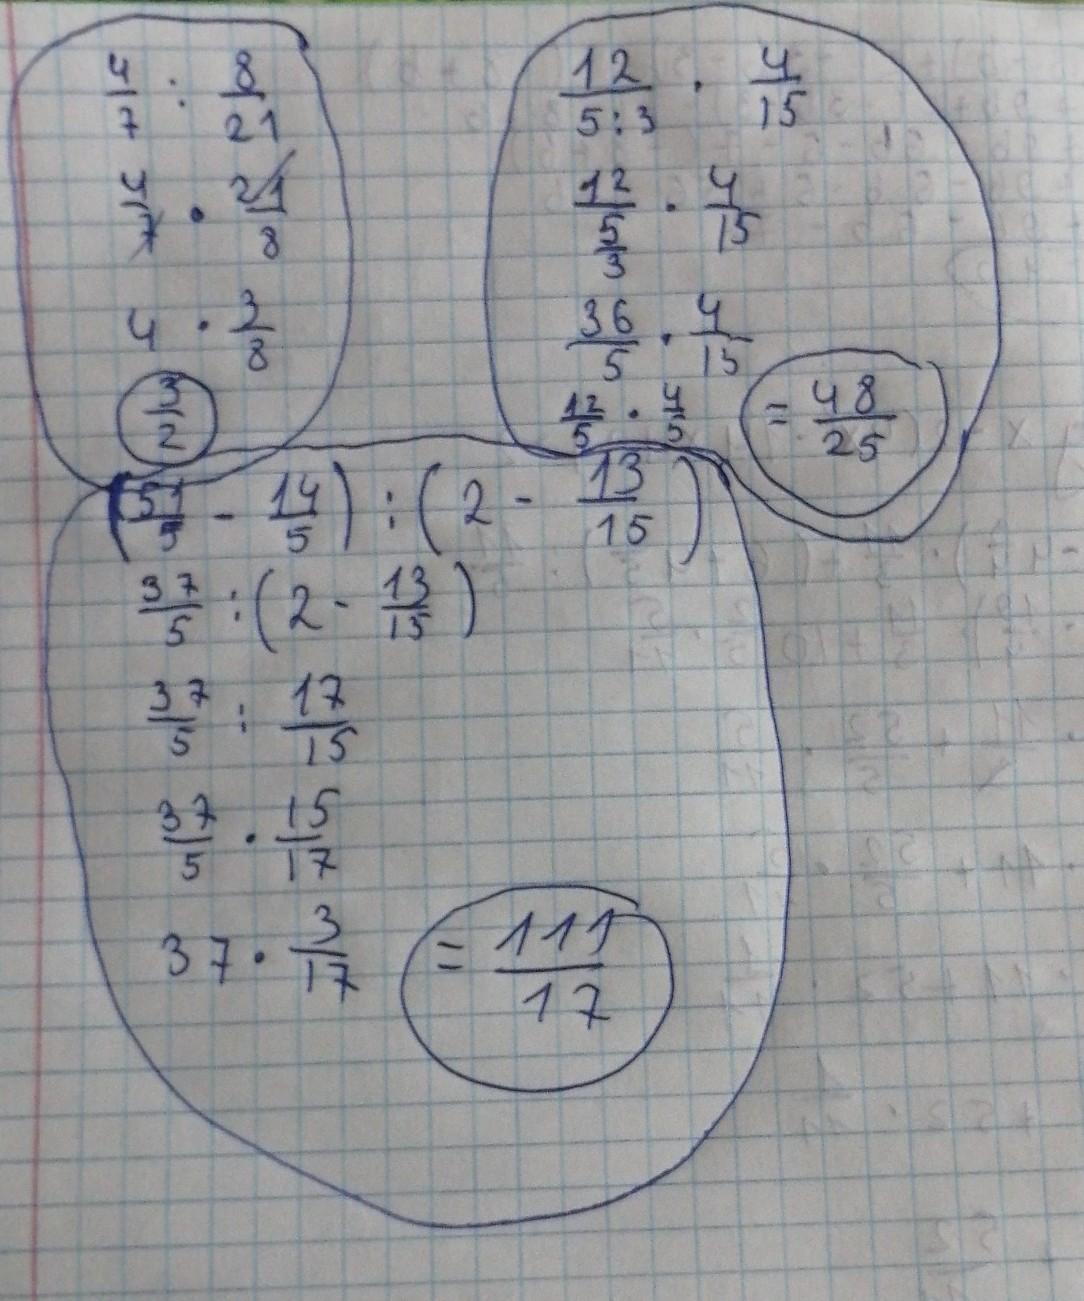 4/7 : 8/21
4/7 · 21/8
4 · 3/8
3/2
12/5:3 · 4/15
12/5/3 · 4/15
36/5 · 4/15
12/5 · 4/5 = 48/25
(51/5 - 14/5) : (2 - 13/15)
37/5 : (2 - 13/15)
37/5 : 17/15
37/5 · 15/17
37 · 3/17 = 111/17